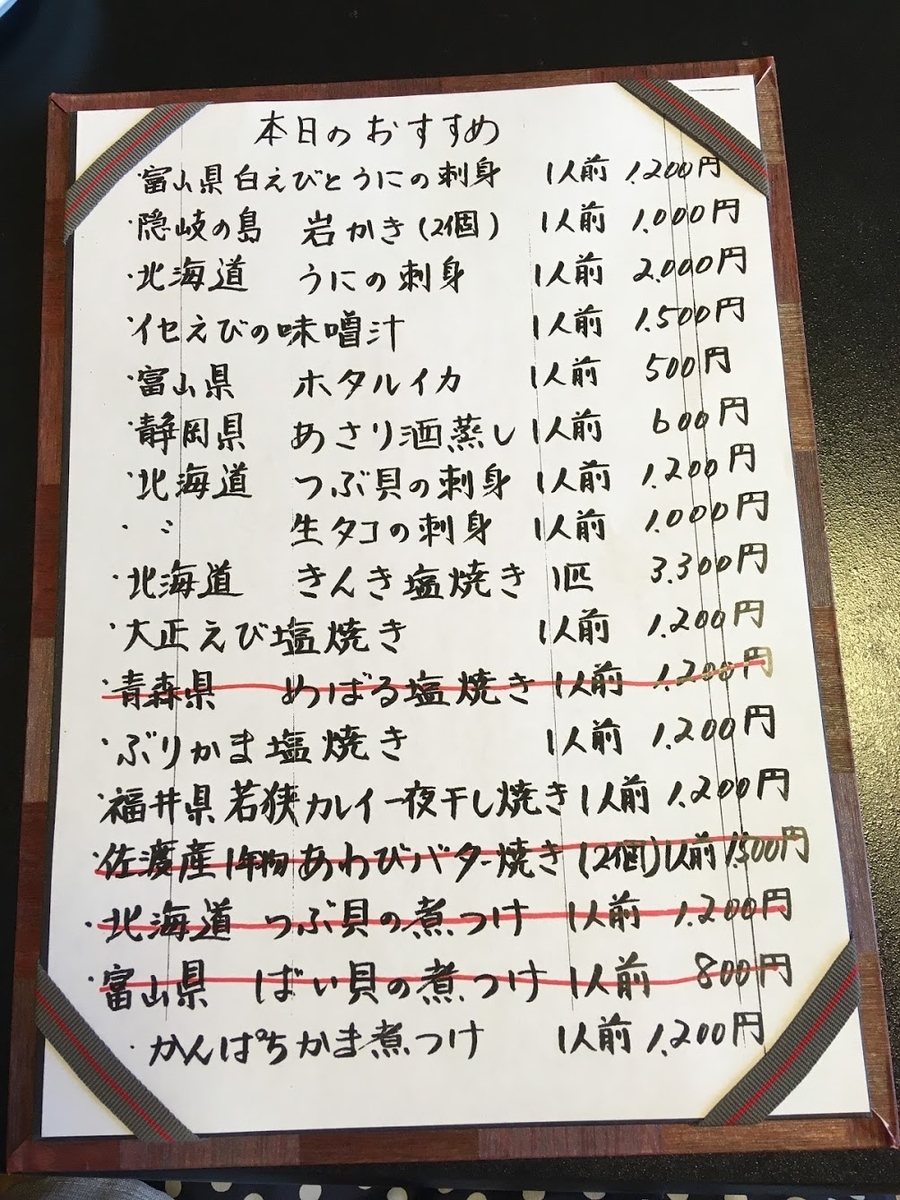 本日のおすすめ
・富山県白えびとうにの刺身 1人前 1.200円
・隠岐の島 岩かき(2個) 1人前 1.000円
・北海道 うにの刺身 1人前 2.000円
・イセえびの味噌汁 1人前 1.500円
・富山県 ホタルイカ 1人前 500円
・静岡県 あさり酒蒸し 1人前 600円
・北海道 つぶ貝の刺身 1人前 1.200円
・〃 生タコの刺身 1人前 1.000円
・北海道 きんき塩焼き 1匹 3.300円
・大正えび塩焼き 1人前 1.200円
・青森県 めばる塩焼き 1人前 1.200円
・ぶりかま塩焼き 1人前 1.200円
・福井県若狭カレイ一夜干し焼き 1人前 1.200円
・佐渡産1年物あわびバター焼き(2個)1人前 1.500円
・北海道 つぶ貝の煮つけ 1人前 1.200円
・富山県 ばい貝の煮つけ 1人前 800円
・かんぱちかま煮つけ 1人前 1.200円